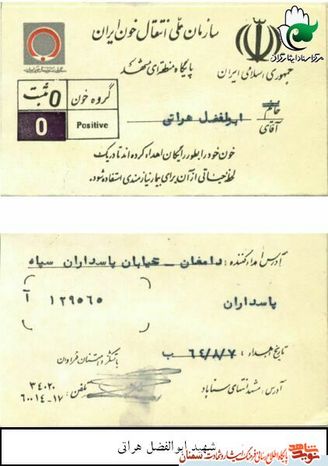 سازمان ملی انتقال خون ایران
پایگاه منطقه‌ای مشهد
جمهوری اسلامی ایران
مرکز اسناد ایثارگران
گروه خون
O مثبت
O
Positive
خانم
آقای
ابوالفضل هراتی
خون خود را بطور رایگان اهداء کرده‌اند تا در یک
لحظه حیاتی از آن برای بیمار نیازمندی استفاده شود.
آدرس اهداءکننده: دامغان - خیابان پاسداران سپاه
پاسداران
۱۲۹۵۶۵ آ
تاریخ اهداء: ۶۴/۸/۷ ب
با تشکر و امتنان فراوان
آدرس: مشهد انتهای سناباد
تلفن: ۳۴۰۲۰
۶۰۰۱۴-۱۷
شهید ابوالفضل هراتی
نوید شاهد
پایگاه اطلاع رسانی فرهنگ ایثار و شهادت سمنان